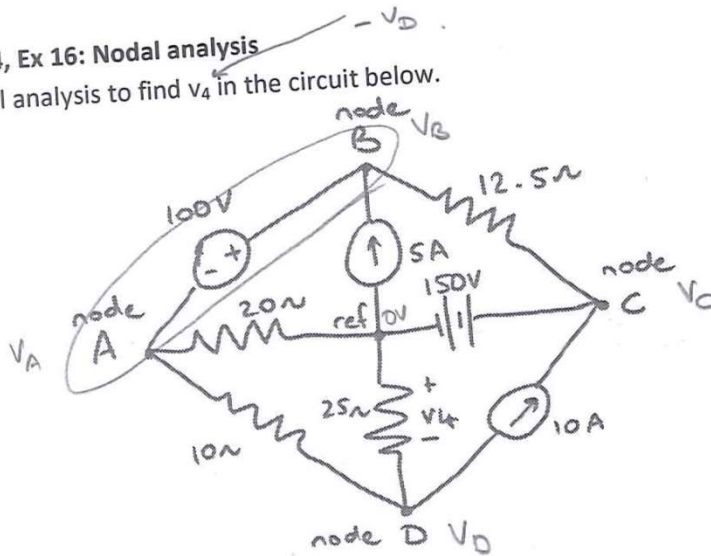 - VD .
4, Ex 16: Nodal analysis
l analysis to find v4 in the circuit below.
node
B VB
100V
12.5Ω
- +
5A
150V
node
C VC
node
A
VA
20Ω
ref 0V
25Ω
+
V4
-
10A
10Ω
node D VD